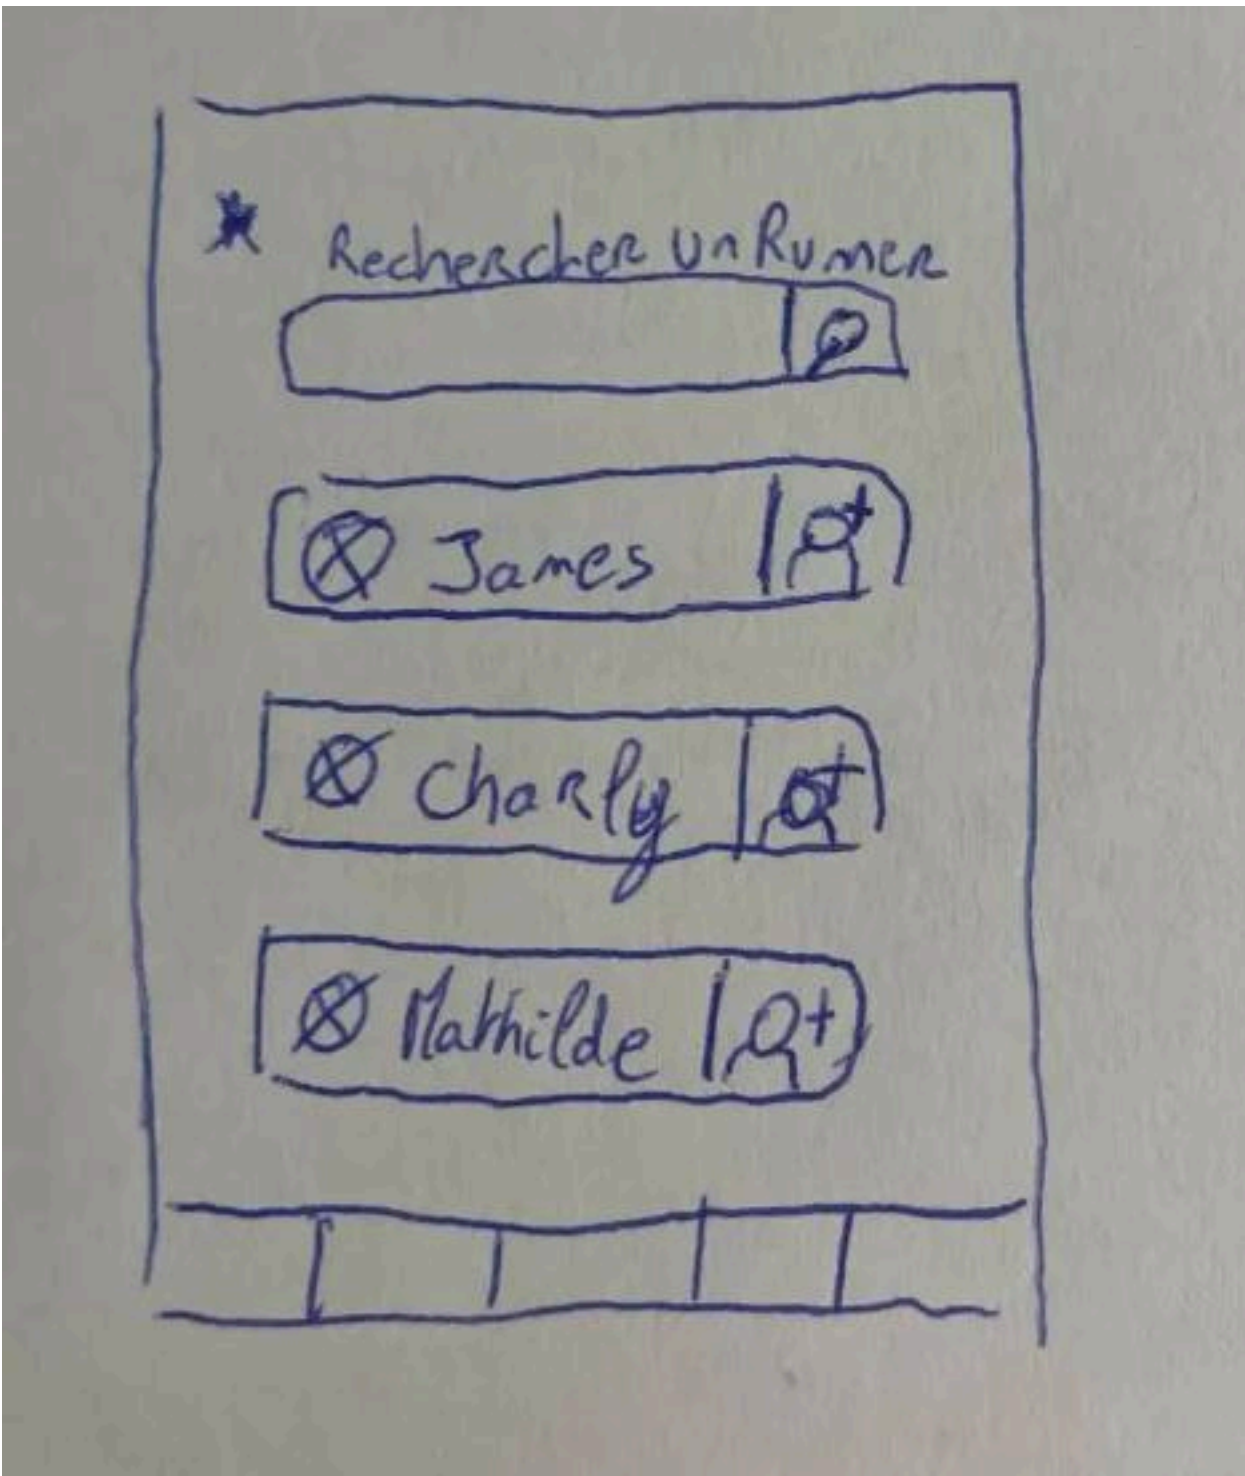 Rechercher un Rumer
James
Charly
Mathilde